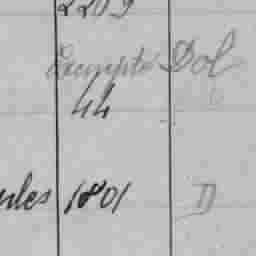 2209
Exempté Dol
44
ules 1801 D